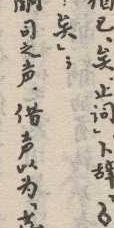 已、矣、止词」卜辞、
矣」;
司之声、借声以为「